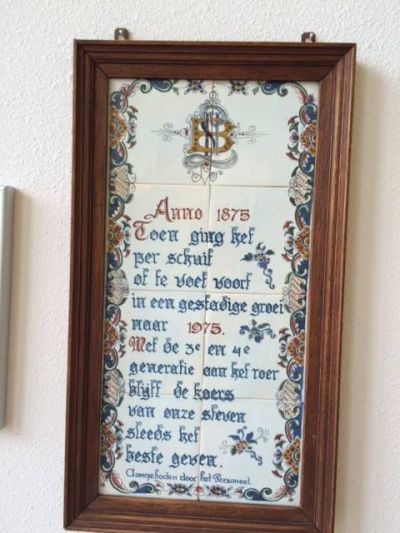 Anno 1875
Toen ging het
per schuit
of te voet voort
in een gestadige groei
naar 1975.
Met de 3e en 4e
generatie aan het roer
blijft de koers
van onze steven
steeds het
beste geven.
Aangeboden door het Personeel.